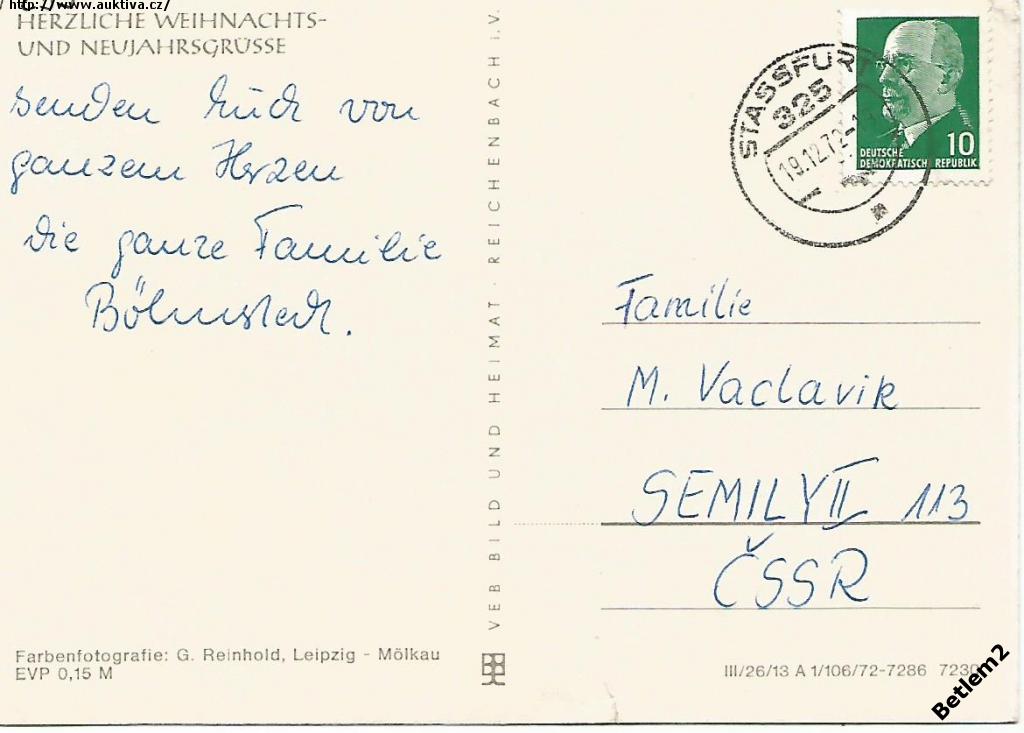 http://www.auktiva.cz/
HERZLICHE WEIHNACHTS-
UND NEUJAHRSGRÜSSE
senden Euch von
ganzem Herzen
die ganze Familie
Böhmstedt.
VEB BILD UND HEIMAT · REICHENBACH i. V.
STASSFURT
325
19.12.72
10
DEUTSCHE
DEMOKRATISCH REPUBLIK
Familie
M. Vaclavik
SEMILY II 113
ČSSR
Farbenfotografie: G. Reinhold, Leipzig - Mölkau
EVP 0,15 M
III/26/13 A 1/106/72-7286
Betlem2